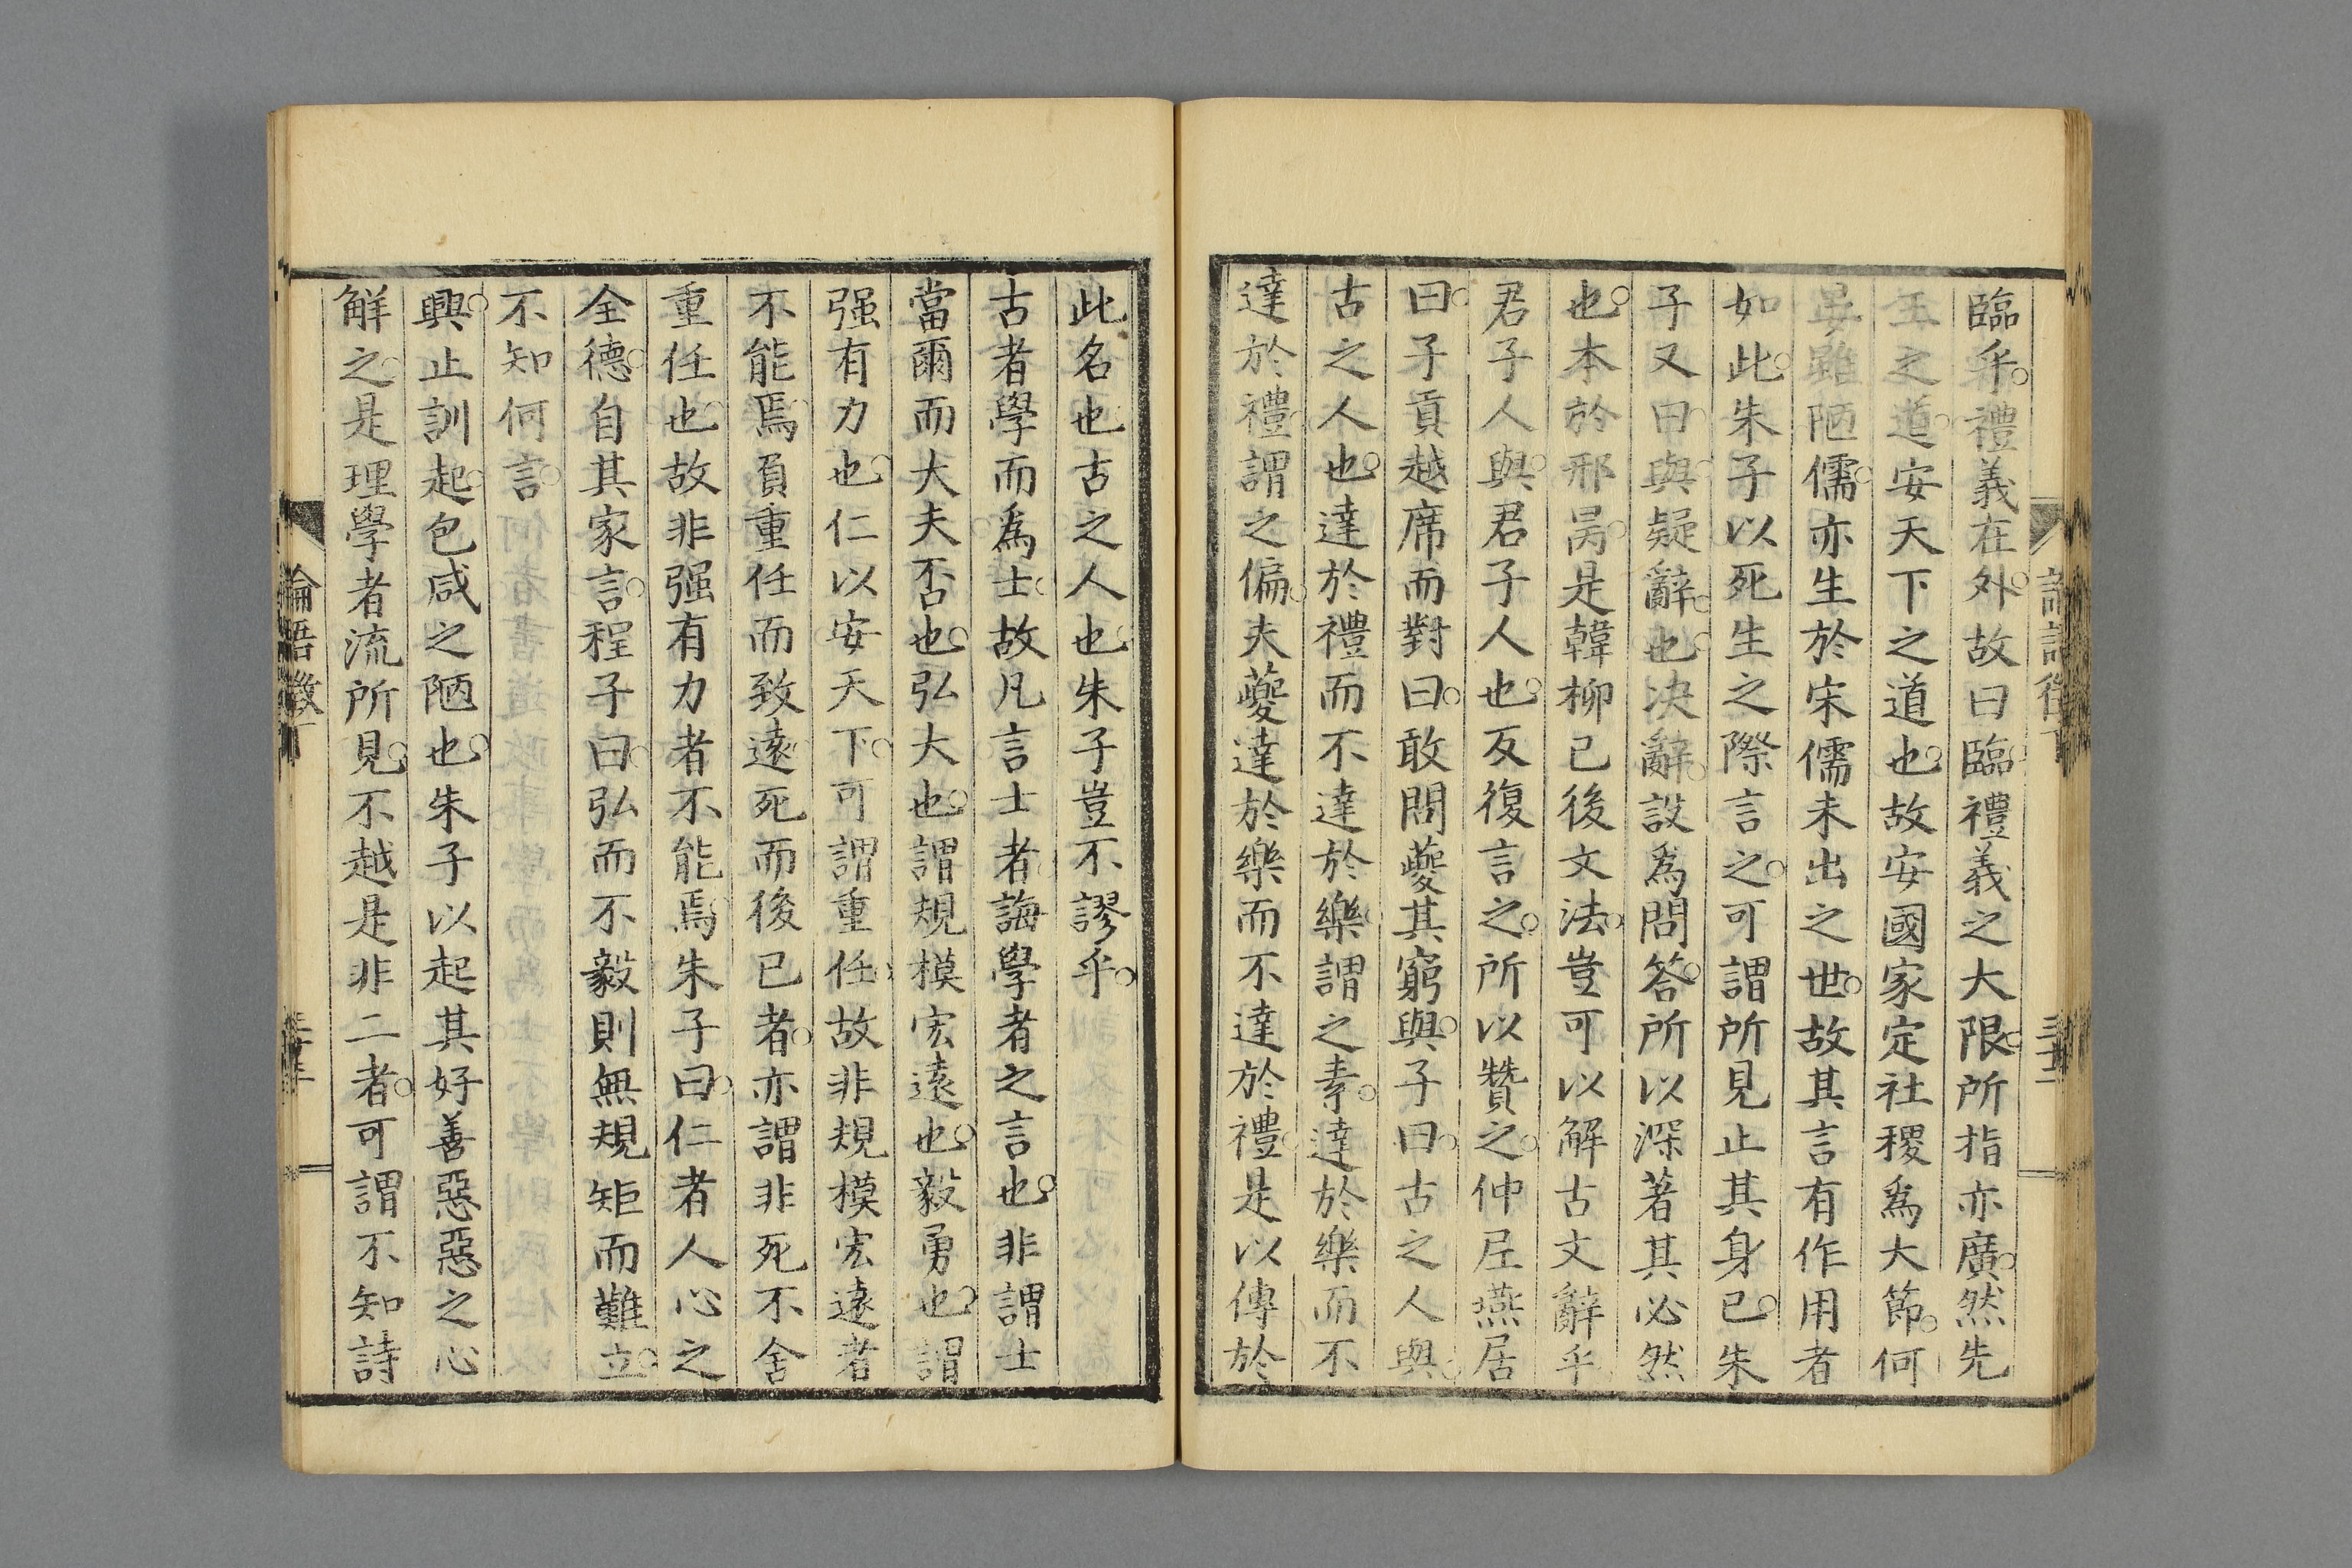 臨乎禮義在外故曰臨禮義之大限所指亦廣然先
王之道安天下之道也故安國家定社稷爲大節何
晏雖陋儒亦生於宋儒未出之世故其言有作用者
如此朱子以死生之際言之可謂所見止其身已朱
子又曰與疑辭也决辭設爲問答所以深著其必然
也本於邢昺是韓柳已後文法豈可以解古文辭乎
君子人與君子人也反復言之所以贊之仲尼燕居
曰子貢越席而對曰敢問夔其窮與子曰古之人與
古之人也達於禮而不達於樂謂之素達於樂而不
達於禮謂之偏夫夔達於樂而不達於禮是以傳於
此名也古之人也朱子豈不謬乎
古者學而爲士故凡言士者誨學者之言也非謂士
當爾而大夫否也弘大也謂規模宏遠也毅勇也謂
强有力也仁以安天下可謂重任故非規模宏遠者
不能焉負重任而致遠死而後已者亦謂非死不舍
重任也故非强有力者不能焉朱子曰仁者人心之
全德自其家言程子曰弘而不毅則無規矩而難立
不知何言
興止訓起包咸之陋也朱子以起其好善惡惡之心
解之是理學者流所見不越是非二者可謂不知詩
論語徵